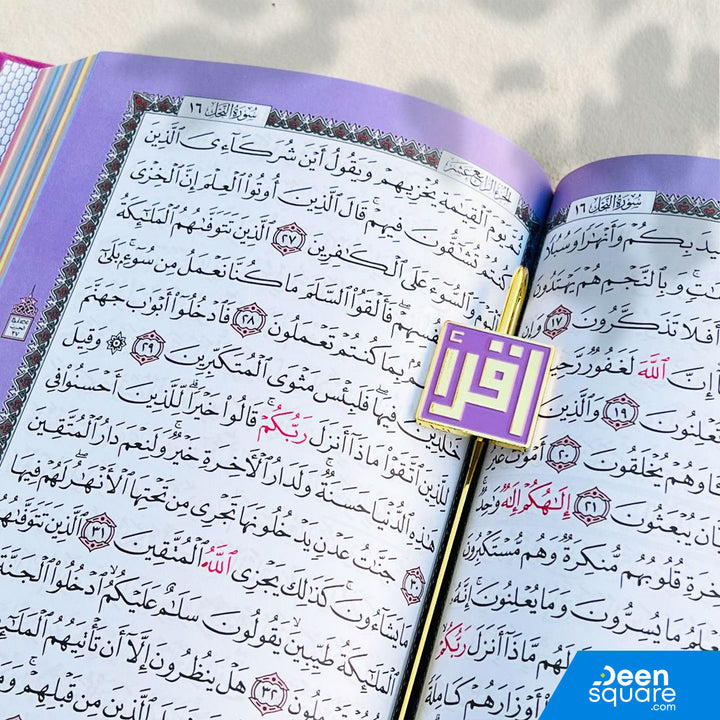 سُورَةُ النَّحْلِ ١٦
الجُزْءُ الرَّابِعَ عَشَرَ
ثُمَّ يَوْمَ ٱلْقِيَٰمَةِ يُخْزِيهِمْ وَيَقُولُ أَيْنَ شُرَكَآءِىَ ٱلَّذِينَ
كُنتُمْ تُشَٰٓقُّونَ فِيهِمْ ۚ قَالَ ٱلَّذِينَ أُوتُوا۟ ٱلْعِلْمَ إِنَّ ٱلْخِزْىَ
ٱلْيَوْمَ وَٱلسُّوٓءَ عَلَى ٱلْكَٰفِرِينَ ٢٧ ٱلَّذِينَ تَتَوَفَّىٰهُمُ ٱلْمَلَٰٓئِكَةُ
فَأَلْقَوُا۟ ٱلسَّلَمَ مَا كُنَّا نَعْمَلُ مِن سُوٓءٍۭ ۚ بَلَىٰٓ
بِمَا كُنتُمْ تَعْمَلُونَ ٢٨ فَٱدْخُلُوٓا۟ أَبْوَٰبَ جَهَنَّمَ
خَٰلِدِينَ فِيهَا ۖ فَلَبِئْسَ مَثْوَى ٱلْمُتَكَبِّرِينَ ٢٩ ۞ وَقِيلَ
لِلَّذِينَ ٱتَّقَوْا۟ مَاذَآ أَنزَلَ رَبُّكُمْ ۚ قَالُوا۟ خَيْرًا ۗ لِّلَّذِينَ أَحْسَنُوا۟ فِى
هَٰذِهِ ٱلدُّنْيَا حَسَنَةٌ ۚ وَلَدَارُ ٱلْءَاخِرَةِ خَيْرٌ ۚ وَلَنِعْمَ دَارُ ٱلْمُتَّقِينَ
٣٠ جَنَّٰتُ عَدْنٍ يَدْخُلُونَهَا تَجْرِى مِن تَحْتِهَا ٱلْأَنْهَٰرُ ۖ لَهُمْ فِيهَا
مَا يَشَآءُونَ ۚ كَذَٰلِكَ يَجْزِى ٱللَّهُ ٱلْمُتَّقِينَ ٣١ ٱلَّذِينَ تَتَوَفَّىٰهُمُ
ٱلْمَلَٰٓئِكَةُ طَيِّبِينَ ۙ يَقُولُونَ سَلَٰمٌ عَلَيْكُمُ ٱدْخُلُوا۟ ٱلْجَنَّةَ
٣٢ هَلْ يَنظُرُونَ إِلَّآ أَن تَأْتِيَهُمُ ٱلْمَلَٰٓئِكَةُ
ٱلَّذِينَ مِن قَبْلِهِمْ ۚ وَمَا
اقرأ
سُورَةُ النَّحْلِ ١٦
بِكُمْ وَأَنْهَٰرًا وَسُبُلًا
وَبِٱلنَّجْمِ هُمْ يَهْتَدُونَ
أَفَلَا تَذَكَّرُونَ ١٧ وَإِن
ٱللَّهَ لَغَفُورٌ رَّحِيمٌ
١٩ وَٱلَّذِينَ
يُخْلَقُونَ ٢٠ أَمْوَٰتٌ غَيْرُ
يُبْعَثُونَ ٢١ إِلَٰهُكُمْ إِلَٰهٌ وَٰحِدٌ ۚ
قُلُوبُهُم مُّنكِرَةٌ وَهُم مُّسْتَكْبِرُونَ
مَا يُسِرُّونَ وَمَا يُعْلِنُونَ ۚ إِنَّهُۥ
لَهُم مَّاذَآ أَنزَلَ رَبُّكُمْ ۙ
أَوْزَارَهُمْ كَامِلَةً
Deen
square
.com